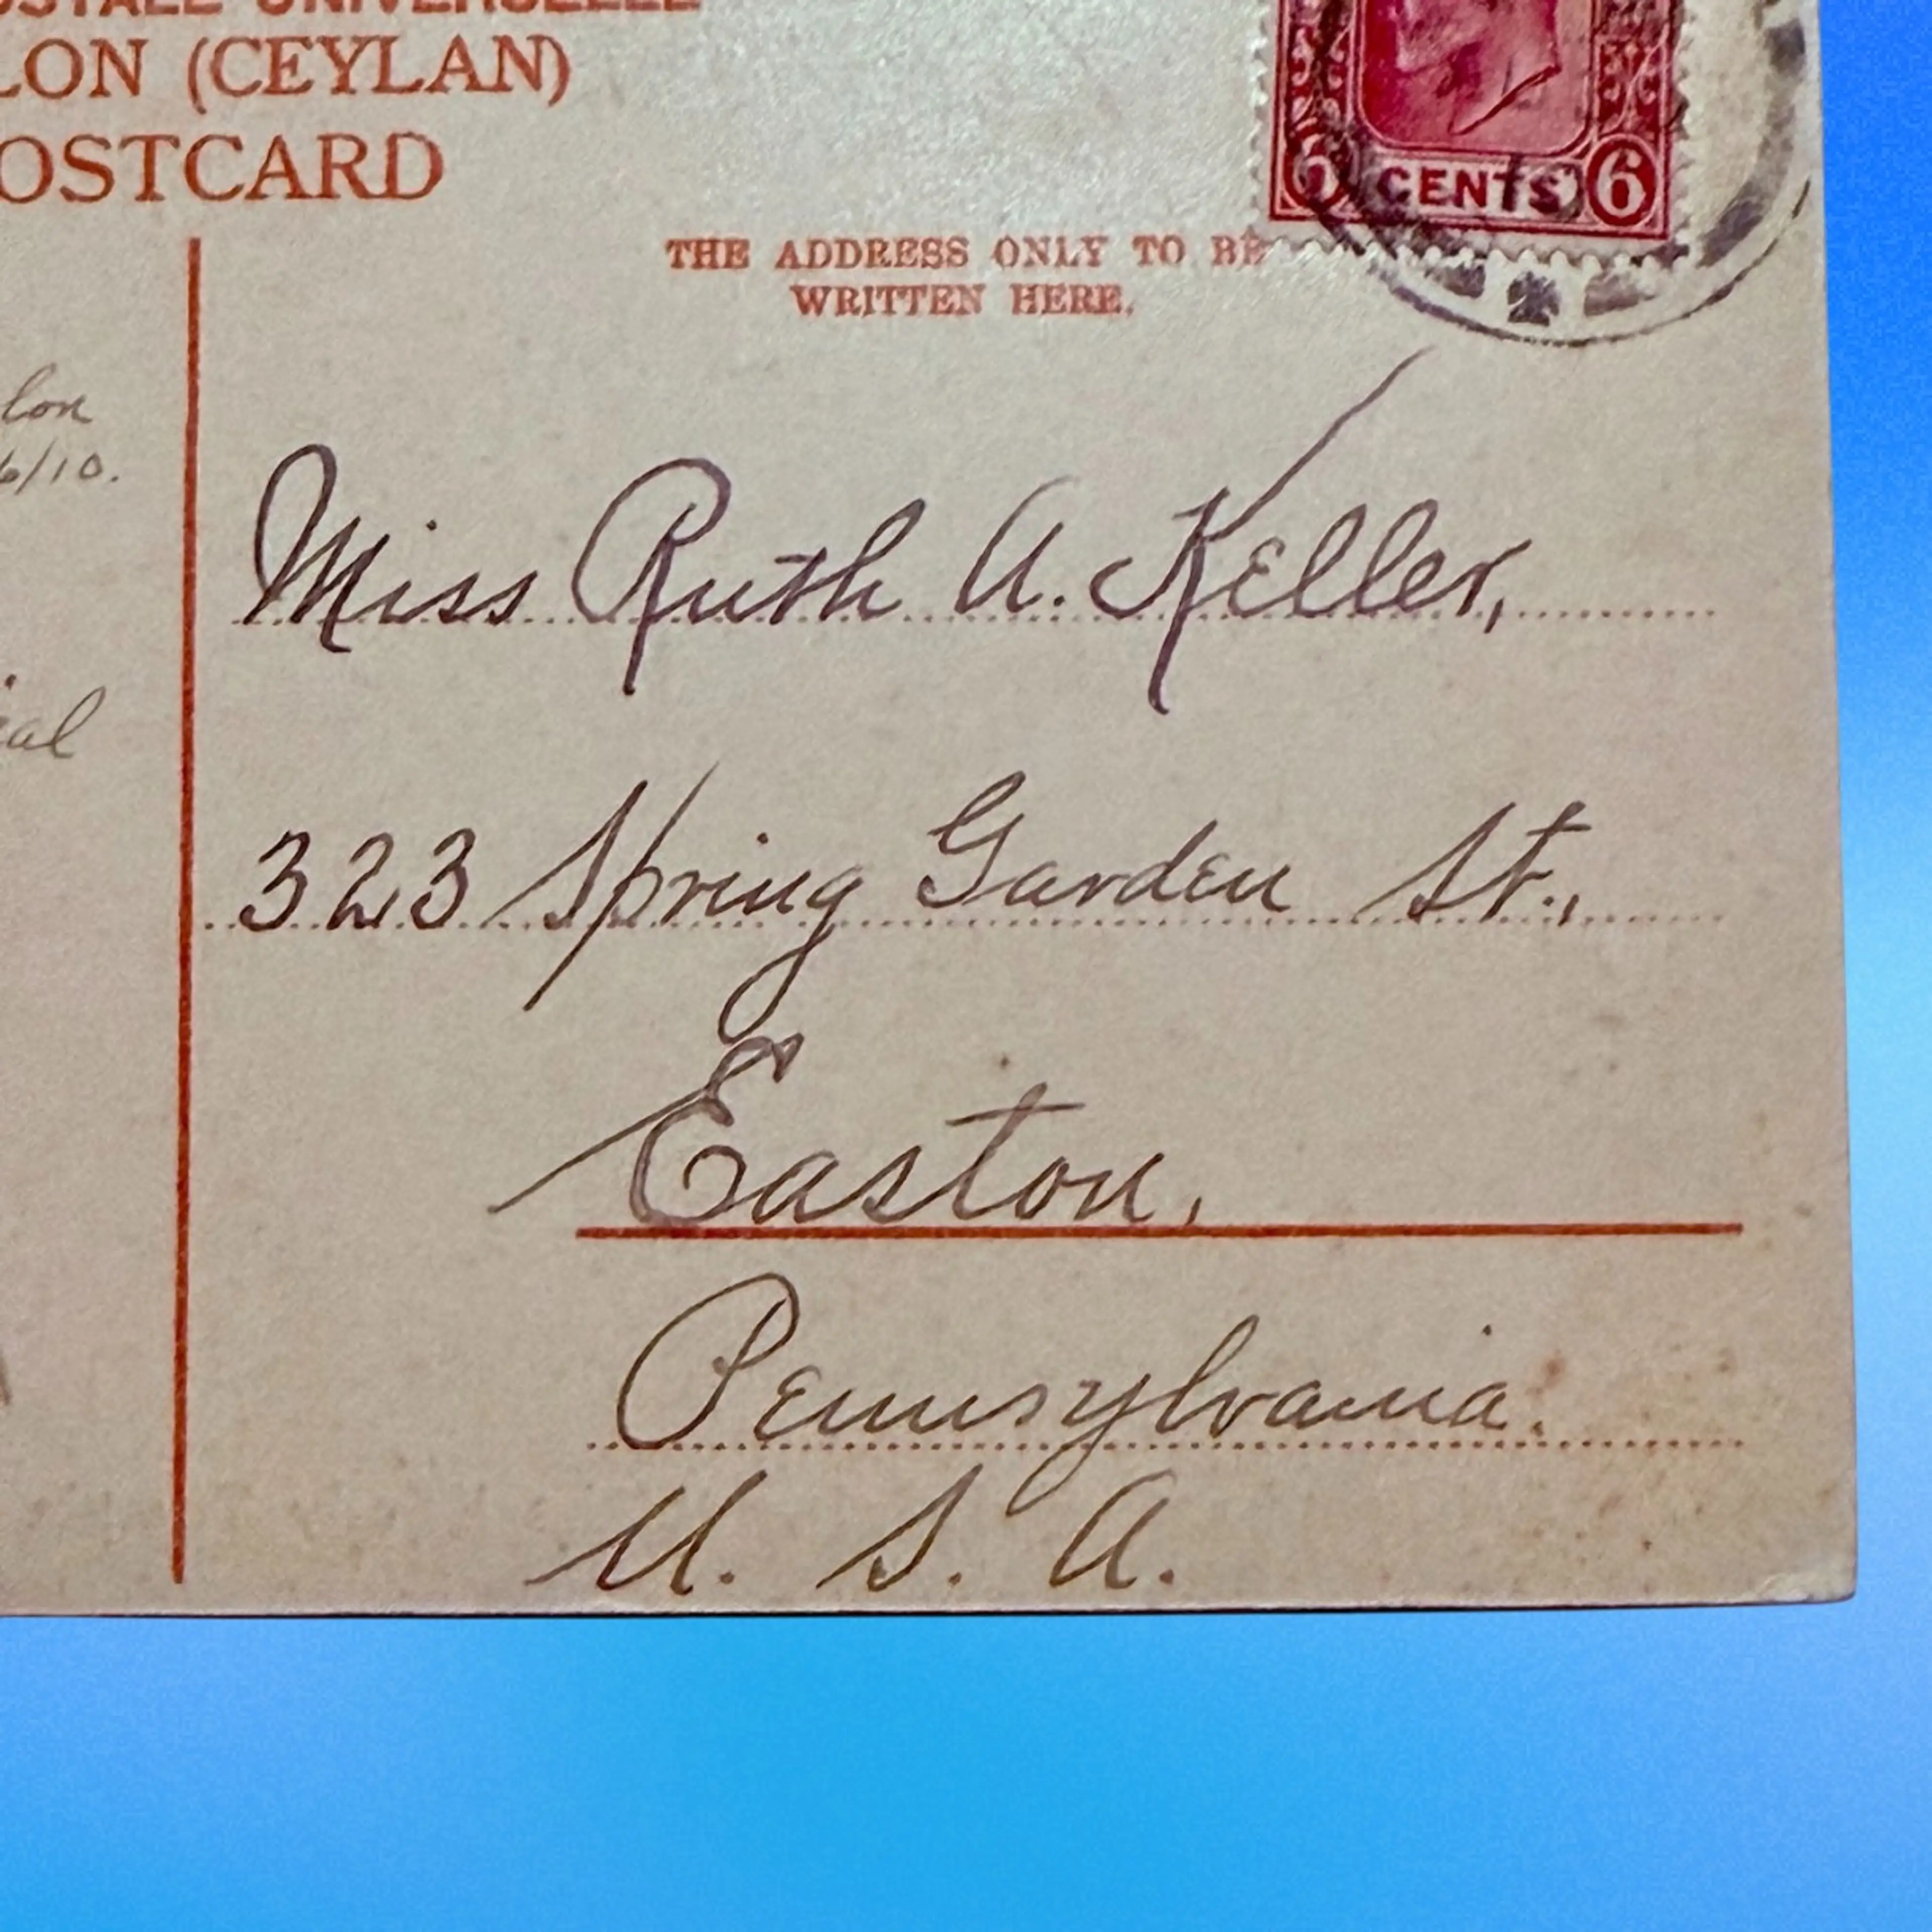 OSTALE UNIVERSELLE
LON (CEYLAN)
OSTCARD
6 CENTS 6
THE ADDRESS ONLY TO BE
WRITTEN HERE.
lon
6/10.
ial
Miss Ruth A. Keller,
323 Spring Garden St.,
Easton,
Pennsylvania.
U. S. A.